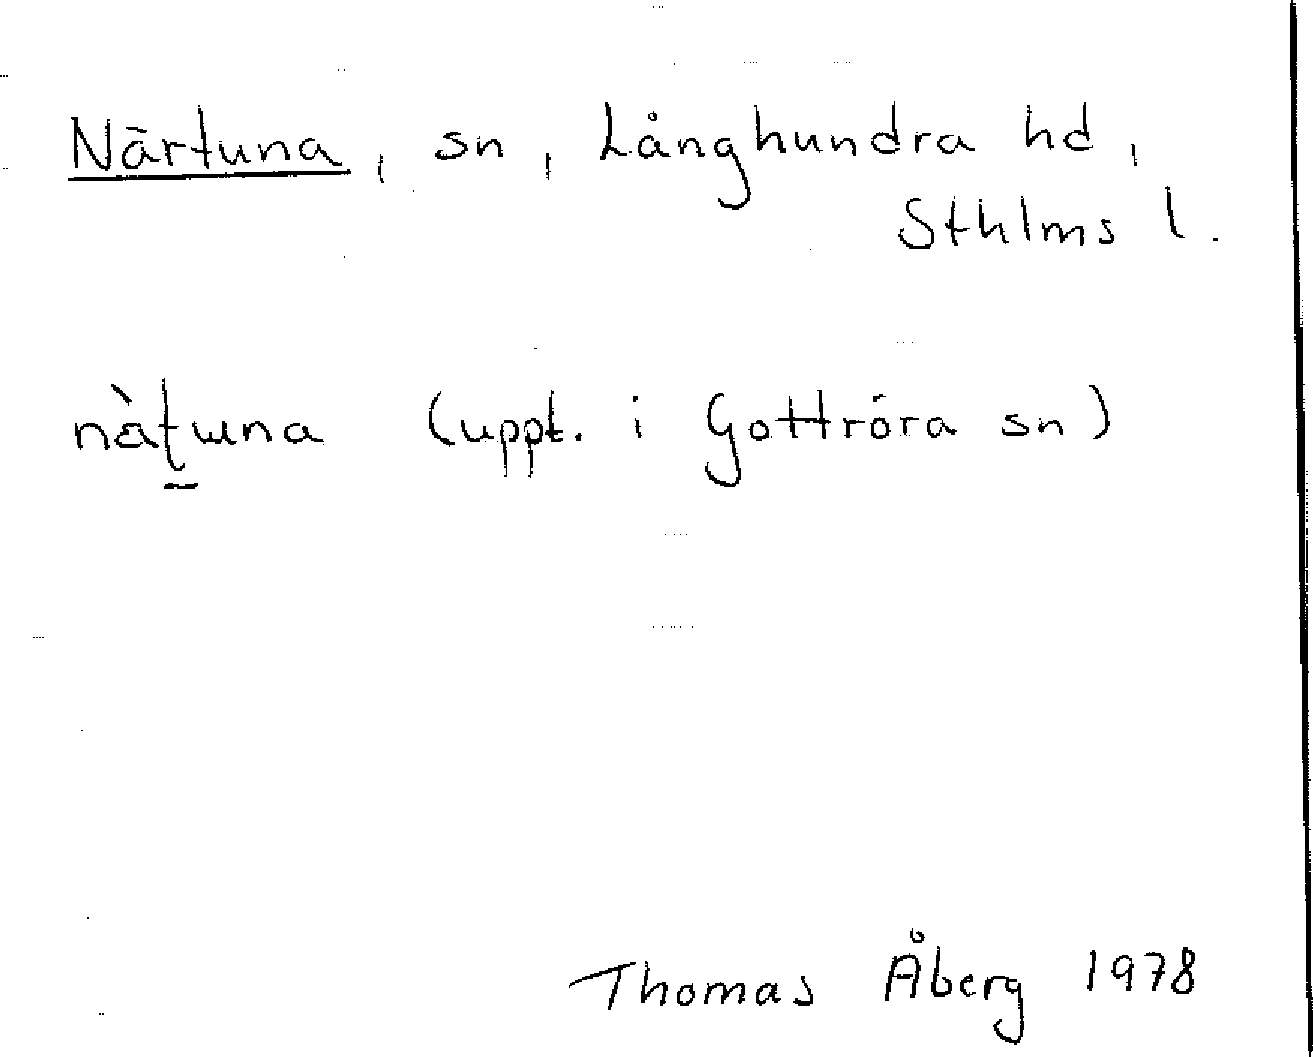 Närtuna, sn, Långhundra hd,
Sthlms l.
nàt̠ɯna (uppt. i Gottröra sn)
Thomas Åberg 1978